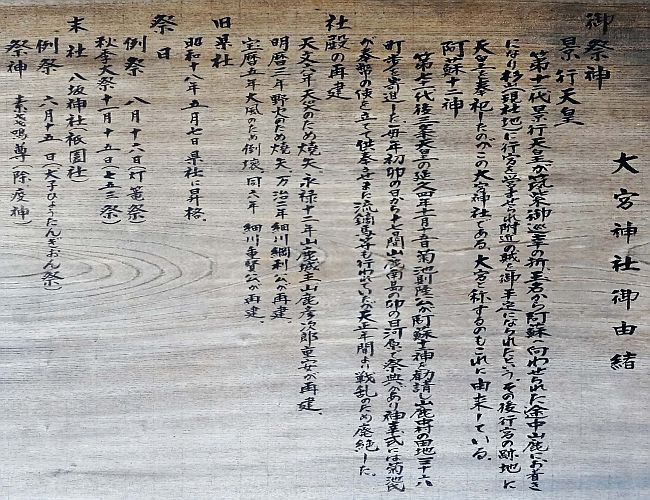 大宮神社御由緒
御祭神
景行天皇
第十二代景行天皇が筑紫御巡幸の折、玉名から阿蘇へ向わせられた途中山鹿にお着き
になり杉山(現社地)に行宮を営ませられ附近の賊を御平定になられたという。その後行宮の跡地に
天皇を奉祀したのがこの大宮神社である。大宮と称するのもこれに由来している。
阿蘇十二神
第七十一代後三条天皇の延久四年十一月十五日菊池則隆公が阿蘇十二神を勧請し山鹿中村の田地三十六
町歩を寄進した。毎年初卯の日から十七日間山鹿南島の卯の日河原で祭典があり神幸式には菊池氏
が奉幣の使を立てて供奉させまた流鏑馬等も行われていたが天正年間より戦乱のため廃絶した。
社殿の再建
天文六年天災のため焼失、永禄十二年山鹿城主山鹿彦次郎重安が再建、
明暦三年野火のため焼失、万治二年細川綱利公が再建、
宝暦五年大風のため倒壊、同八年 細川重賢公が再建、
旧県社
昭和十八年五月七日県社に昇格、
祭日
例祭 八月十六日(灯篭祭)
秋季大祭 十一月十五日(七五三祭)
末社 八坂神社(祇園社)
例祭 六月十五日(犬子ひょうたんぎおん祭)
祭神 素戔嗚尊(除疫神)